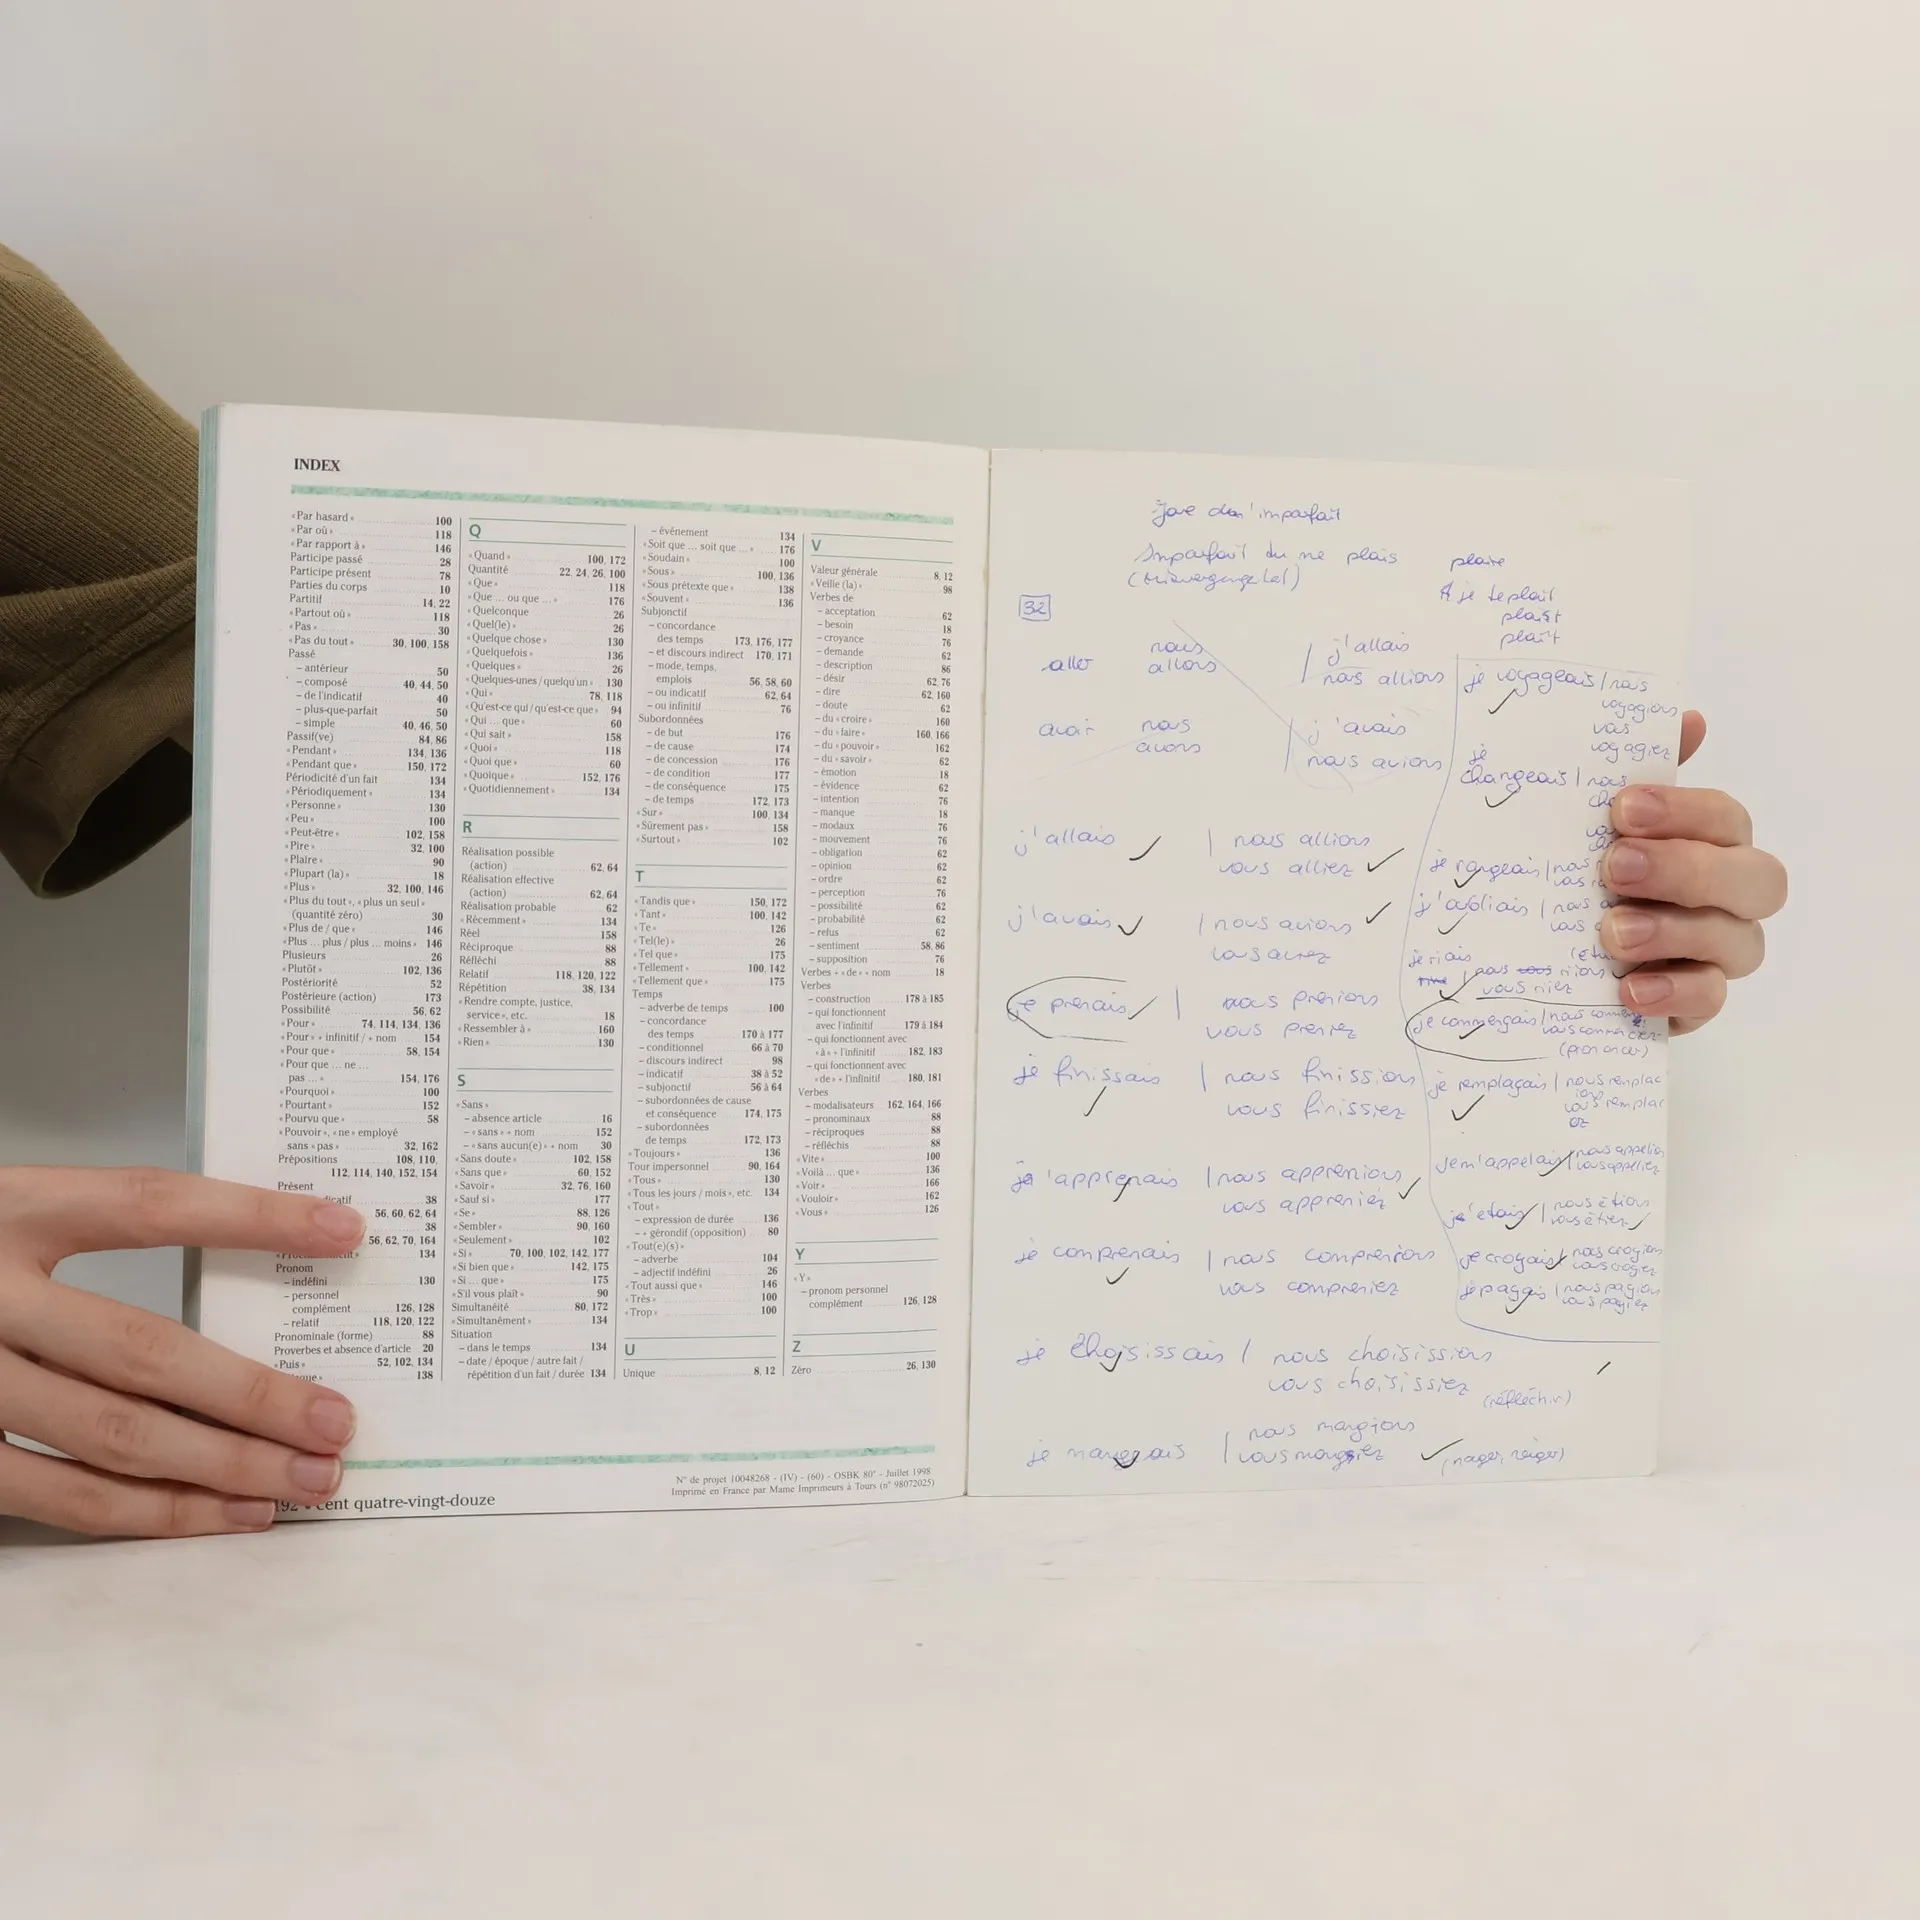 INDEX
« Par hasard » 100
« Par où » 118
« Par rapport à » 146
Participe passé 28
Participe présent 78
Parties du corps 10
Partitif 14, 22
« Partout où » 118
« Pas » 30
« Pas du tout » 30, 100, 158
Passé
– antérieur 50
– composé 40, 44, 50
– de l'indicatif 40
– plus-que-parfait 50
– simple 40, 46, 50
Passif(ve) 84, 86
« Pendant » 134, 136
« Pendant que » 150, 172
Périodicité d'un fait 134
« Périodiquement » 134
« Personne » 130
« Peu » 100
« Peut-être » 102, 158
« Pire » 32, 100
« Plaire » 90
« Plupart (la) » 18
« Plus » 32, 100, 146
« Plus du tout », « plus un seul »
(quantité zéro) 30
« Plus de / que » 146
« Plus ... plus / plus ... moins » 146
Plusieurs 26
« Plutôt » 102, 136
Postériorité 52
Postérieure (action) 173
Possibilité 56, 62
« Pour » 74, 114, 134, 136
« Pour » + infinitif / + nom 154
« Pour que » 58, 154
« Pour que ... ne ...
pas ... » 154, 176
« Pourquoi » 100
« Pourtant » 152
« Pourvu que » 58
« Pouvoir », « ne » employé
sans « pas » 32, 162
Prépositions 108, 110,
112, 114, 140, 152, 154
Présent
38
56, 60, 62, 64
38
56, 62, 70, 164
134
Pronom
– indéfini 130
– personnel
complément 126, 128
– relatif 118, 120, 122
Pronominale (forme) 88
Proverbes et absence d'article 20
« Puis » 52, 102, 134
138
Q
« Quand » 100, 172
Quantité 22, 24, 26, 100
« Que » 118
« Que ... ou que ... » 176
« Quelconque 26
« Quel(le) » 26
« Quelque chose » 130
« Quelquefois » 136
« Quelques » 26
« Quelques-unes / quelqu'un » 130
« Qui » 78, 118
« Qu'est-ce qui / qu'est-ce que » 94
« Qui ... que » 60
« Qui sait » 158
« Quoi » 118
« Quoi que » 60
« Quoique » 152, 176
« Quotidiennement » 134
R
Réalisation possible
(action) 62, 64
Réalisation effective
(action) 62, 64
Réalisation probable 62
« Récemment » 134
Réel 158
Réciproque 88
Réfléchi 88
Relatif 118, 120, 122
Répétition 38, 134
« Rendre compte, justice,
service », etc. 18
« Ressembler à » 160
« Rien » 130
S
« Sans »
– absence article 16
– « sans » + nom 152
– « sans aucun(e) » + nom 30
« Sans doute » 102, 158
« Sans que » 60, 152
« Savoir » 32, 76, 160
« Sauf si » 177
« Se » 88, 126
« Sembler » 90, 160
« Seulement » 102
« Si » 70, 100, 102, 142, 177
« Si bien que » 142, 175
« Si ... que » 175
« S'il vous plaît » 90
Simultanéité 80, 172
« Simultanément » 134
Situation
– dans le temps 134
– date / époque / autre fait /
répétition d'un fait / durée 134
– événement 134
« Soit que ... soit que ... » 176
« Soudain » 100
« Sous » 100, 136
« Sous prétexte que » 138
« Souvent » 136
Subjonctif
– concordance
des temps 173, 176, 177
– et discours indirect 170, 171
– mode, temps,
emplois 56, 58, 60
– ou indicatif 62, 64
– ou infinitif 76
Subordonnées
– de but 176
– de cause 174
– de concession 176
– de condition 177
– de conséquence 175
– de temps 172, 173
« Sur » 100, 134
« Sûrement pas » 158
« Surtout » 102
T
« Tandis que » 150, 172
« Tant » 100, 142
« Te » 126
« Tel(le) » 26
« Tel que » 175
« Tellement » 100, 142
« Tellement que » 175
Temps
– adverbe de temps 100
– concordance
des temps 170 à 177
– conditionnel 66 à 70
– discours indirect 98
– indicatif 38 à 52
– subjonctif 56 à 64
– subordonnées de cause
et conséquence 174, 175
– subordonnées
de temps 172, 173
« Toujours » 136
Tour impersonnel 90, 164
« Tous » 130
« Tous les jours / mois », etc. 134
« Tout »
– expression de durée 136
– + gérondif (opposition) 80
« Tout(e)(s) »
– adverbe 104
– adjectif indéfini 26
« Tout aussi que » 146
« Très » 100
« Trop » 100
U
Unique 8, 12
V
Valeur générale 8, 12
« Veille (la) » 98
Verbes de
– acceptation 62
– besoin 18
– croyance 76
– demande 62
– description 86
– désir 62, 76
– dire 62, 160
– doute 62
– du « croire » 160
– du « faire » 160, 166
– du « pouvoir » 162
– du « savoir » 62
– émotion 18
– évidence 62
– intention 76
– manque 18
– modaux 76
– mouvement 76
– obligation 62
– opinion 62
– ordre 62
– perception 76
– possibilité 62
– probabilité 62
– refus 62
– sentiment 58, 86
– supposition 76
Verbes + « de » + nom 18
Verbes
– construction 178 à 185
– qui fonctionnent
avec l'infinitif 179 à 184
– qui fonctionnent avec
« à » + l'infinitif 182, 183
– qui fonctionnent avec
« de » + l'infinitif 180, 181
Verbes
– modalisateurs 162, 164, 166
– pronominaux 88
– réciproques 88
– réfléchis 88
« Vite » 100
« Voilà ... que » 136
« Voir » 166
« Vouloir » 162
« Vous » 126
Y
« Y »
– pronom personnel
complément 126, 128
Z
Zéro 26, 130
N° de projet 10048268 - (IV) - (60) - OSBK 80° - Juillet 1998
Imprimé en France par Mame Imprimeurs à Tours (n° 98072025)
192 • cent quatre-vingt-douze
imparfait
Imparfait du ne plais plaire
je te plait
plaîst
plaît
32
aller nous allons | j'allais
nous allions
avoir nous avons | j'avais
nous avions
j'allais | nous allions
vous alliez
j'avais | nous avions
vous aviez
je prenais | nous prenions
vous preniez
je finissais | nous finissions
vous finissiez
j'apprenais | nous apprenions
vous appreniez
je comprenais | nous comprenions
vous compreniez
je choisissais | nous choisissions
vous choisissiez
(réfléchir)
je mangeais | nous mangions
vous mangiez (nager, neiger)
je voyageais | nous
voyagions
vous
voyagiez
je
changeais | nous
je rangeais | nous
vous
j'oubliais | nous
vous
je riais
nous riions
vous riiez
je commençais | nous
vous
(prononcer)
je remplaçais | nous remplac
ions
vous remplac
ez
je m'appelais | nous appelions
vous appeliez
j'etais | nous étions
vous étiez
je croyais | nous croyions
vous croyiez
je payais | nous payions
vous payiez